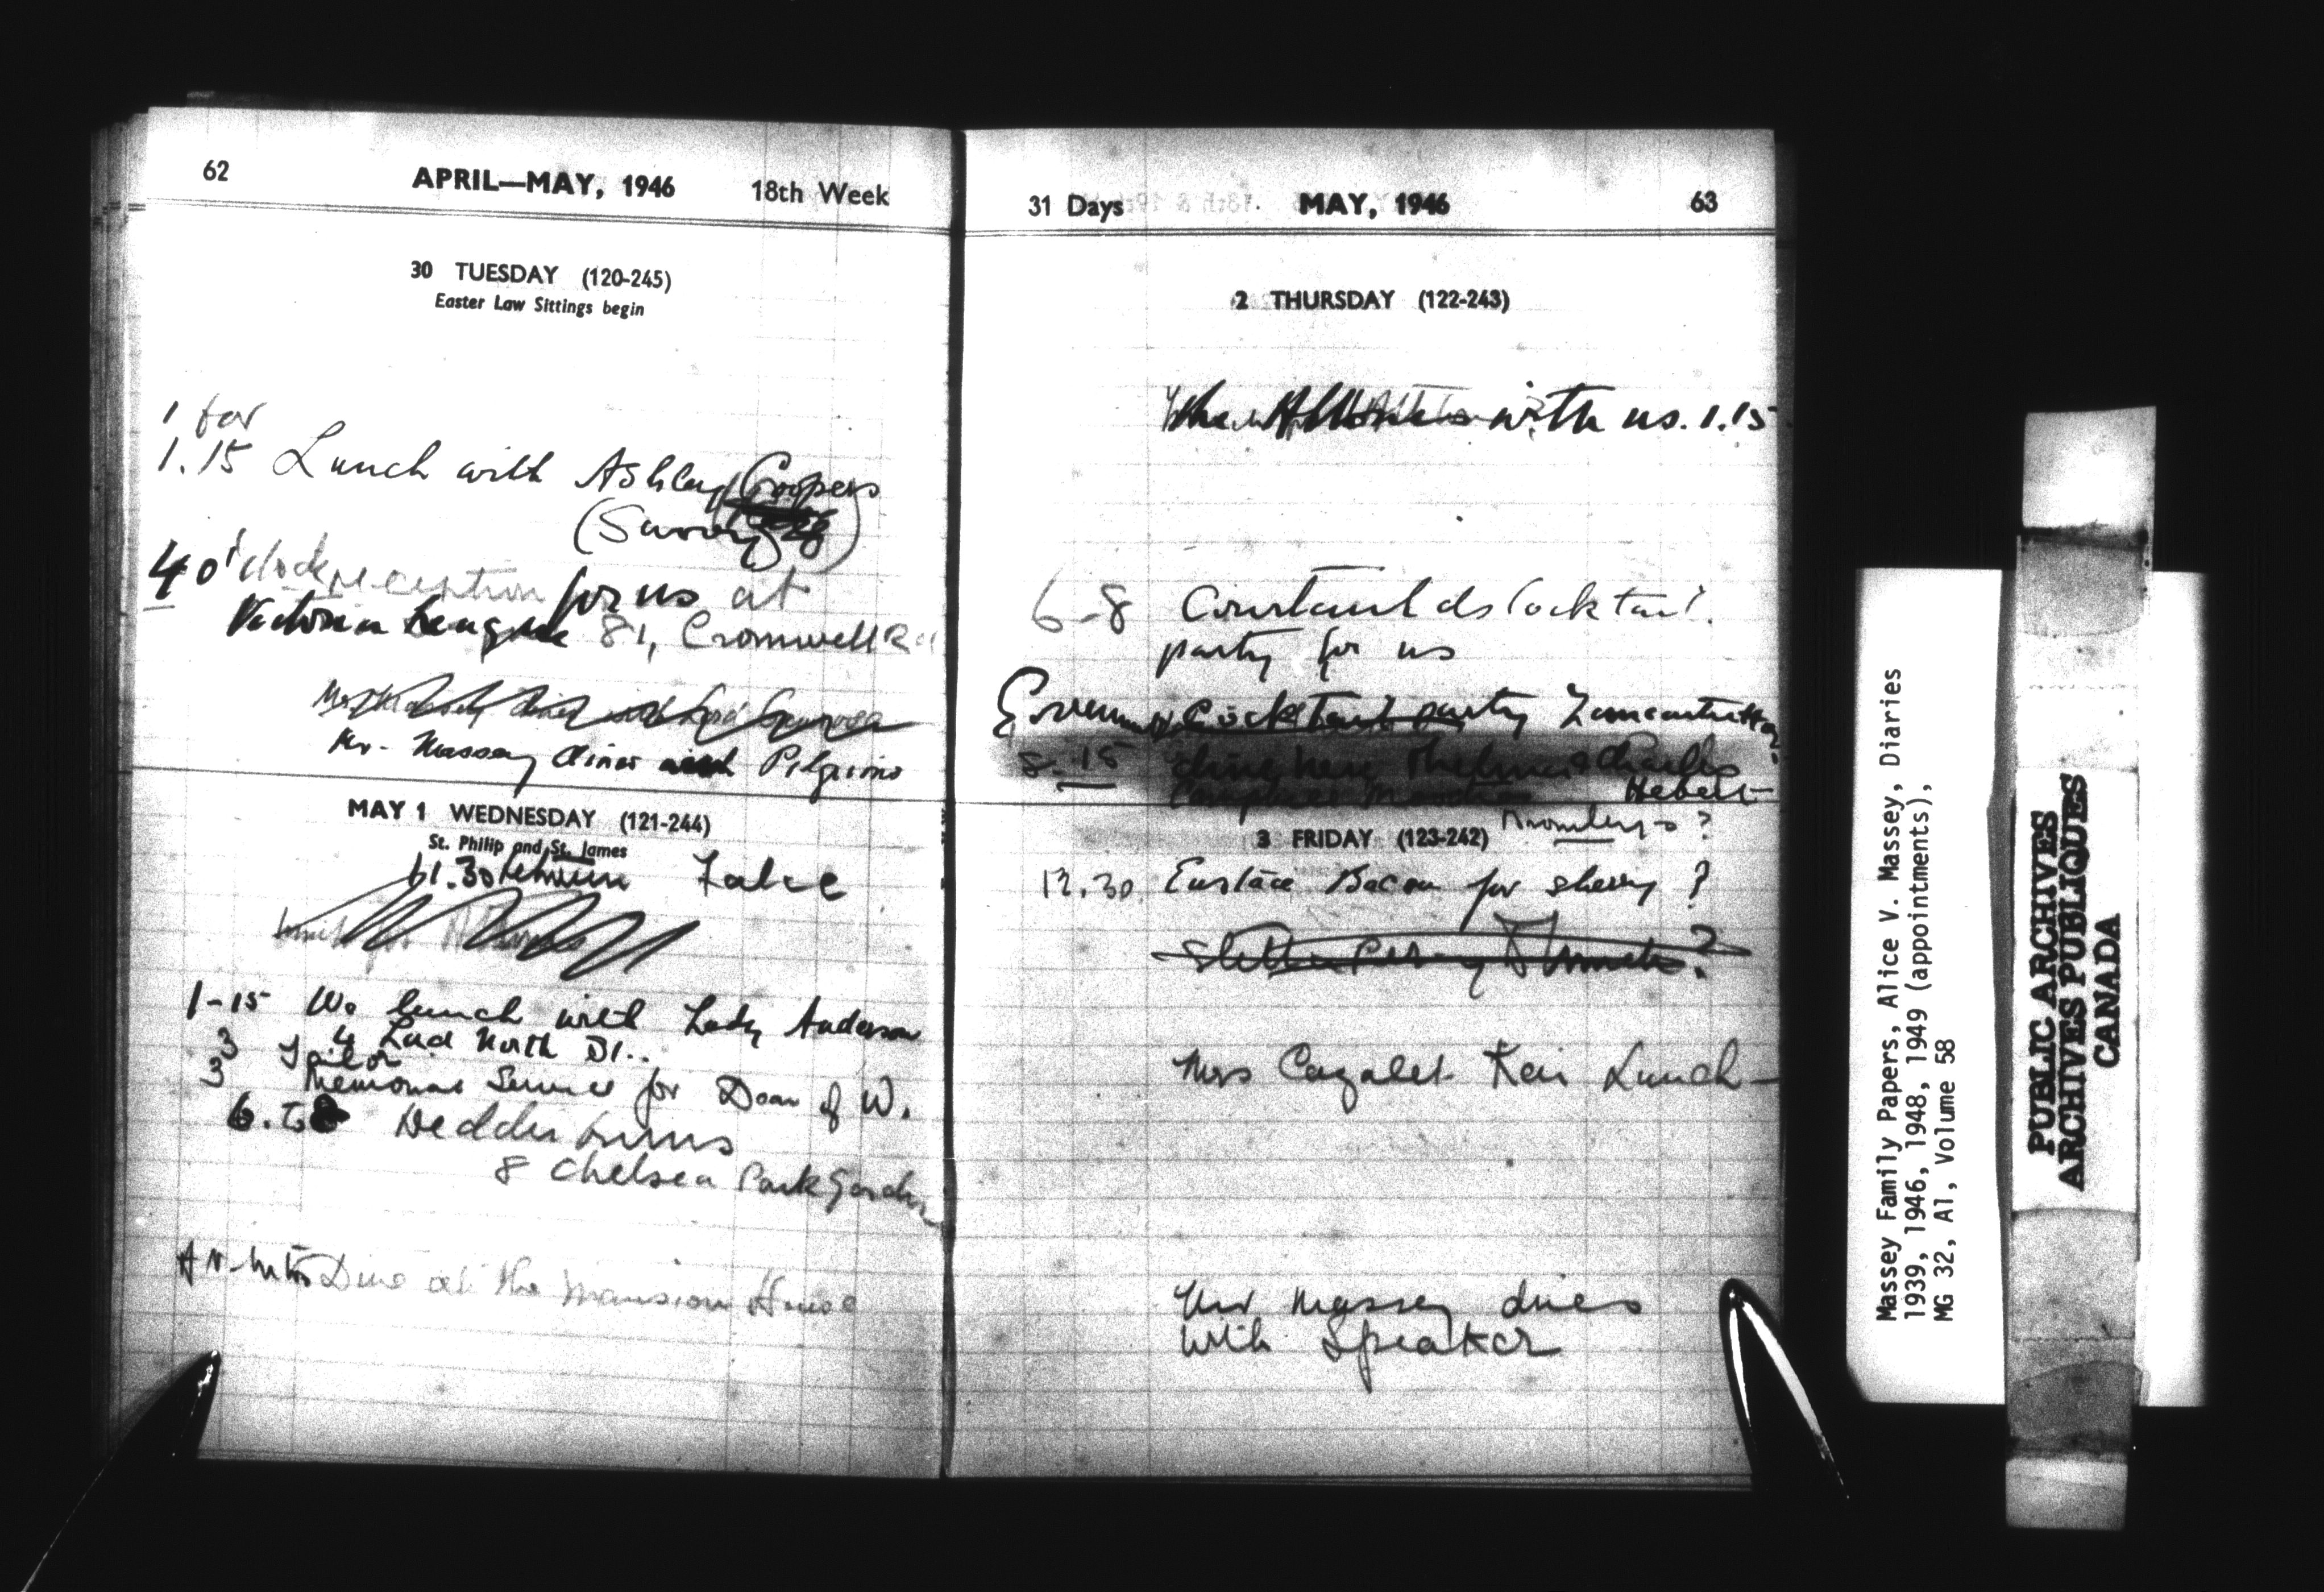 62 APRIL—MAY, 1946 18th Week
30 TUESDAY (120-245)
Easter Law Sittings begin
1 for
1.15 Lunch with Ashley Coopers
(Savoy)
4 o'clock reception for us at
Victoria League 81, Cromwell Rd
Mr. Massey dines with Pilgrims
MAY 1 WEDNESDAY (121-244)
St. Philip and St. James
11.30
1-15 We lunch with Lady Anderson
4 Lord North St..
3 Tailor
3 Memorial Service for Dean of W.
6. to 8 Wedderburns
8 Chelsea Park Gardens
Dine at the Mansion House
31 Days MAY, 1946 63
2 THURSDAY (122-243)
with us. 1.15
6-8 Courtaulds Cocktail
party for us
Cocktail party
8.15 dine here Thelma & Charles
Hebert
3 FRIDAY (123-242)
12.30 Eustace Bacon for sherry ?
Mrs Cazalet Keir Lunch —
Mr Massey dines
with Speaker
Massey Family Papers, Alice V. Massey, Diaries
1939, 1946, 1948, 1949 (appointments),
MG 32, A1, Volume 58
PUBLIC ARCHIVES
ARCHIVES PUBLIQUES
CANADA